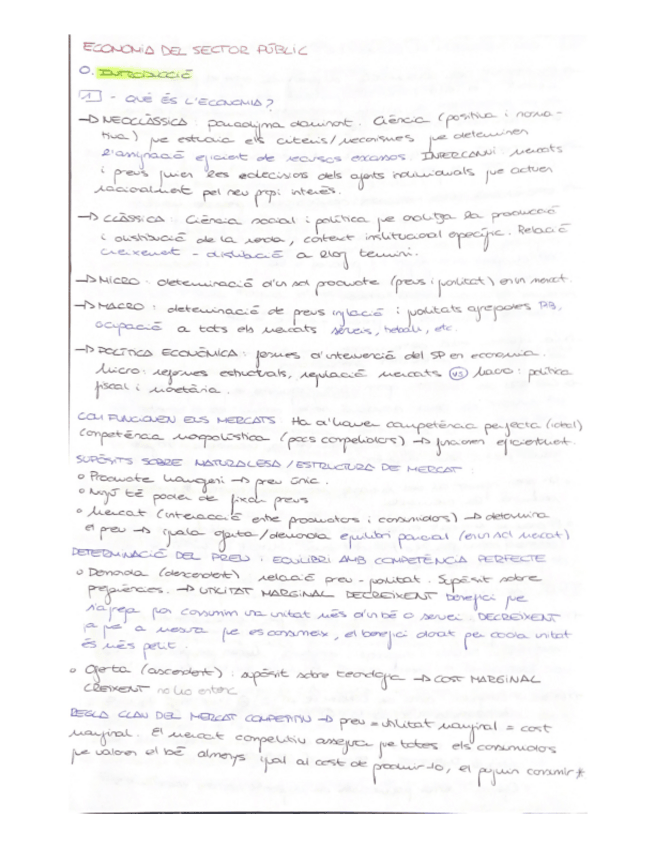 ECONOMIA DEL SECTOR PÚBLIC
0. INTRODUCCIÓ
1 - QUÈ ÉS L'ECONOMIA?
→ NEOCLÀSSICA: paradigma dominant. Ciència (positiva i norma-
tiva) que estudia els criteris/mecanismes que determinen
l'assignació eficient de recursos escassos. INTERCANVI. mercats
i preus guien les decisions dels agents individuals que actuen
racionalment pel seu propi interès.
→ CLÀSSICA: Ciència social i política que analitza la producció
i distribució de la renda, context institucional específic. Relació
creixement - distribució a llarg termini.
→ MICRO: determinació d'un sol producte (preus i quantitat) en un mercat.
→ MACRO: determinació de preus inflació i quantitats agregades PIB,
ocupació a tots els mercats serveis, treball, etc.
→ POLÍTICA ECONÒMICA: formes d'intervenció del SP en economia.
Micro: reformes estructurals, regulació mercats vs Macro: política
fiscal i monetària.
COM FUNCIONEN ELS MERCATS Ha d'haver competència perfecta (ideal)
Competència monopolística (pocs competidors) → funcionen eficientment.
SUPÒSITS SOBRE NATURALESA / ESTRUCTURA DE MERCAT:
o Producte homogeni → preu únic.
o Ningú té poder de fixar preus
o Mercat (interacció entre productors i consumidors) → determina
el preu → iguala oferta/demanda equilibri parcial (en un sol mercat)
DETERMINACIÓ DEL PREU: EQUILIBRI AMB COMPETÈNCIA PERFECTE
o Demanda (descendent) relació preu - quantitat. Supòsit sobre
preferències. → UTILITAT MARGINAL DECREIXENT benefici que
s'agrega por consumir una unitat més d'un bé o servei DECREIXENT
ja que a mesura que es consumeix, el benefici donat per cada unitat
és més petit.
o Oferta (ascendent): supòsit sobre tecnologia → COST MARGINAL
CREIXENT no ho entenc
REGLA CLAU DEL MERCAT COMPETITIU → preu = utilitat marginal = cost
marginal. El mercat competitiu assegura que totes els consumidors
que valoren el bé almenys igual al cost de produir-lo, el puguin consumir *